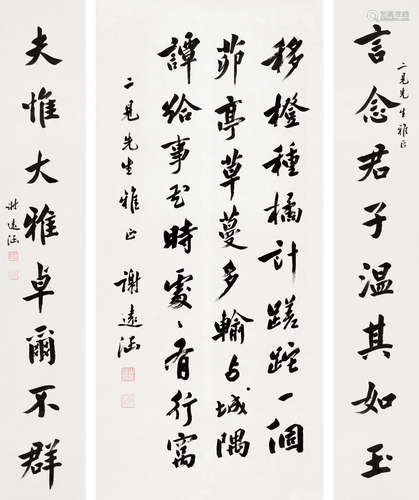 言念君子温其如玉
二見先生雅正
移橙種橘計蹉跎一個
茆亭草蔓多輸与城隅
譚給事花時處〻有行窩
二見先生雅正 謝遠涵
夫惟大雅卓爾不群
謝遠涵